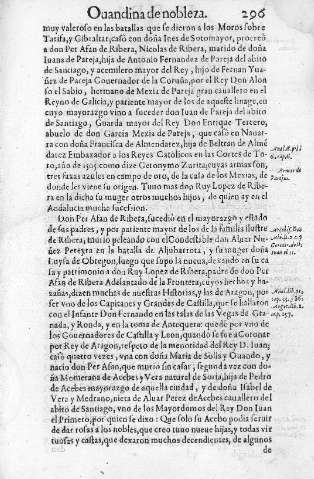 Ouandina de nobleza. 296
muy valeroso en las batallas que se dieron a los Moros sobre
Tarifa, y Gibraltar, casò con doña Ines de Sotomayor, procreò
a don Per Afan de Ribera, Nicolas de Ribera, marido de doña
Iuana de Pareja, hija de Antonio Fernandez de Pareja del abito
de Santiago, y acemilero mayor del Rey, hijo de Fernan Yua-
ñez de Pareja Gouernador de la Coruña, por el Rey Don Alon
so el Sabio, hermano de Mexia de Pareja gran cauallero en el
Reyno de Galicia, y pariente mayor de los de aqueste linage, en
cuyo mayorazgo vino a suceder don Iuan de Pareja del abito
de Santiago, Guarda mayor del Rey Don Enrique Tercero,
abuelo de don Garcia Mexia de Pareja, que casò en Nauar-
ra con doña Francisca de Almendarez, hija de Beltran de Alme
daréz Embaxador a los Reyes Catolicos en las Cortes de To-
ro, año de como dize Geronymo Zurita, cuyas armas son,
tres faxas azules en campo de oro, de la casa de los Mexias, de
donde les viene su origen. Tuuo mas don Ruy Lopez de Ribe-
ra en la dicha su muger otros muchos hijos, de quien ay en el
Andaluzia mucha sucession.
Don Per Afan de Ribera, sucediò en el mayorazgo y estado
de sus padres, y por pariente mayor de los de la familia ilustre
de Ribera, murio peleando con el Condestible don Aluar Nu-
ñez Pereyra en la batalla de Aljubarrota, y su muger doña
Luysa de Obregon, luego que supo la nueua, dexando en su ca
sa y patrimonio a don Ruy Lopez de Ribera, padre de don Per
Afan de Ribera Adelantado de la Frontera, cuyos hechos y ha-
zañas, dizen muchas de nuestras Historias, y las de Aragon, por
ser vno de los Capitanes y Grandes de Castilla, que se hallaron
con el Infante Don Fernando en las talas de las Vegas de Gra-
nada, y Ronda, y en la toma de Antequera: quedò por vno de
los Gouernadores de Castilla y Leon, quando se fue a Coronar
por Rey de Aragon, respeto de la menoridad del Rey D. Iuan;
casò quatro vezes, vna con doña Maria de Solis y Ouando, y
nacio don Per Afan, que murio sin casar, segunda vez con do-
ña de Acebes y Vera natural de Soria, hija de Pedro
de Acebes mayorazgo de aquella ciudad, y de doña Isabel de
Vera y Medrano, nieta de Aluar Perez de Acebes cauallero del
abito de Santiago, vno de los Mayordomos del Rey Don Iuan
el Primero, por quien se dixo: Que solo su Acebo podia seruir
de dar rosas a los nobles, que creo tuuo nueue hijas, y todas vir
tuosas y castas, que dexaron muchos decendientes, de algunos
de